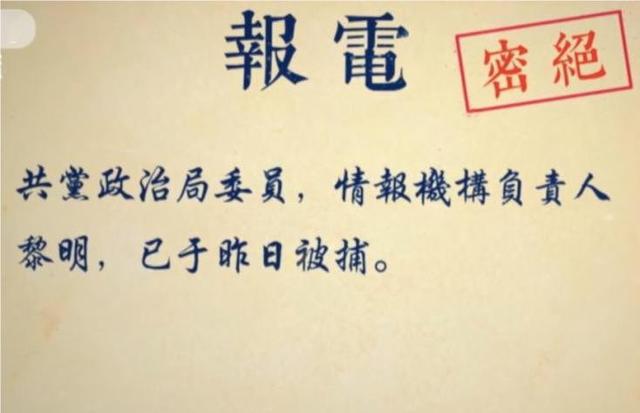 電報
絕密
共黨政治局委員，情報機構負責人
黎明，已于昨日被捕。